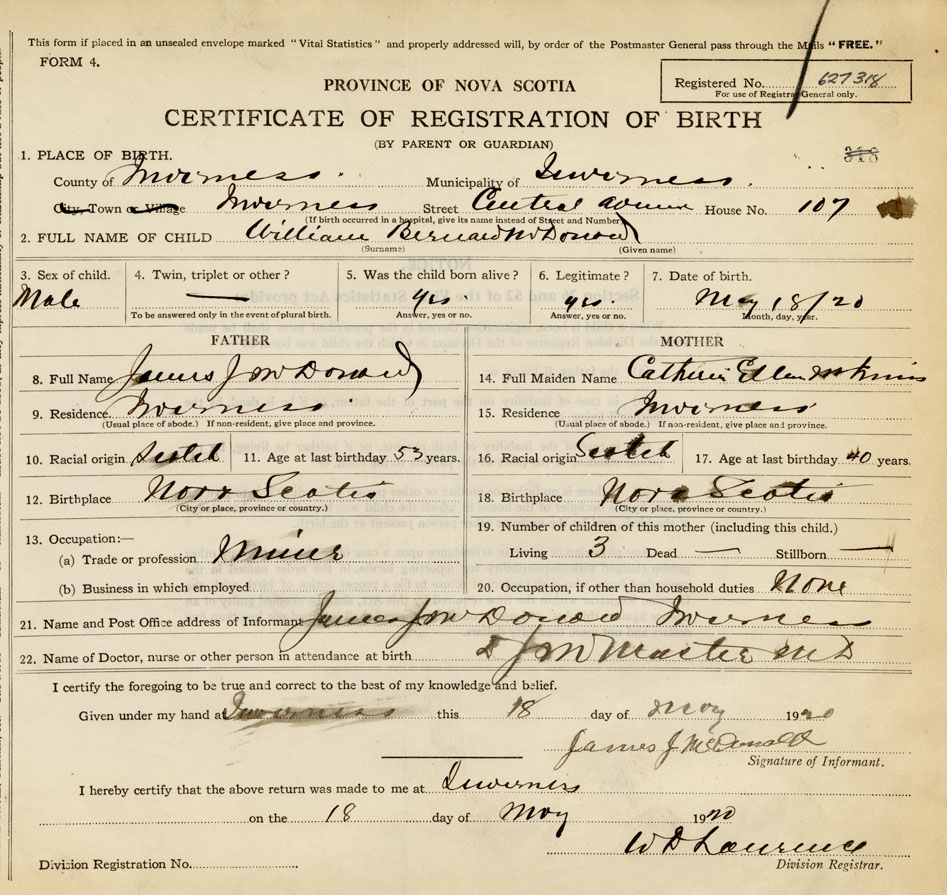 This form if placed in an unsealed envelope marked "Vital Statistics" and properly addressed will, by order of the Postmaster General pass through the Mails "FREE."
FORM 4.
Registered No. 627318
For use of Registrar General only.
PROVINCE OF NOVA SCOTIA
CERTIFICATE OF REGISTRATION OF BIRTH
(BY PARENT OR GUARDIAN)
318
1. PLACE OF BIRTH.
County of Inverness. Municipality of Inverness.
City, Town or Village Inverness Street Central Avenue House No. 107
(If birth occurred in a hospital, give its name instead of Street and Number)
2. FULL NAME OF CHILD William Bernard McDonald
(Surname) (Given name)
3. Sex of child. 4. Twin, triplet or other? 5. Was the child born alive? 6. Legitimate? 7. Date of birth.
Male — yes. yes. May 18/20
To be answered only in the event of plural birth. Answer, yes or no. Answer, yes or no. Month, day, year.
FATHER MOTHER
8. Full Name James J McDonald 14. Full Maiden Name Catherine Ellen
9. Residence Inverness 15. Residence Inverness
(Usual place of abode.) If non-resident, give place and province. (Usual place of abode.) If non-resident, give place and province.
10. Racial origin Scotch 11. Age at last birthday 53 years. 16. Racial origin Scotch 17. Age at last birthday 40 years.
12. Birthplace Nova Scotia 18. Birthplace Nova Scotia
(City or place, province or country.) (City or place, province or country.)
13. Occupation:— 19. Number of children of this mother (including this child.)
(a) Trade or profession Miner Living 3 Dead — Stillborn —
(b) Business in which employed 20. Occupation, if other than household duties None
21. Name and Post Office address of Informant James J McDonald Inverness
22. Name of Doctor, nurse or other person in attendance at birth J McMaster MD
I certify the foregoing to be true and correct to the best of my knowledge and belief.
Given under my hand at Inverness this 18 day of May 1920
James J. McDonald
Signature of Informant.
I hereby certify that the above return was made to me at Inverness
on the 18 day of May 1920
W D Lawrence
Division Registration No. Division Registrar.